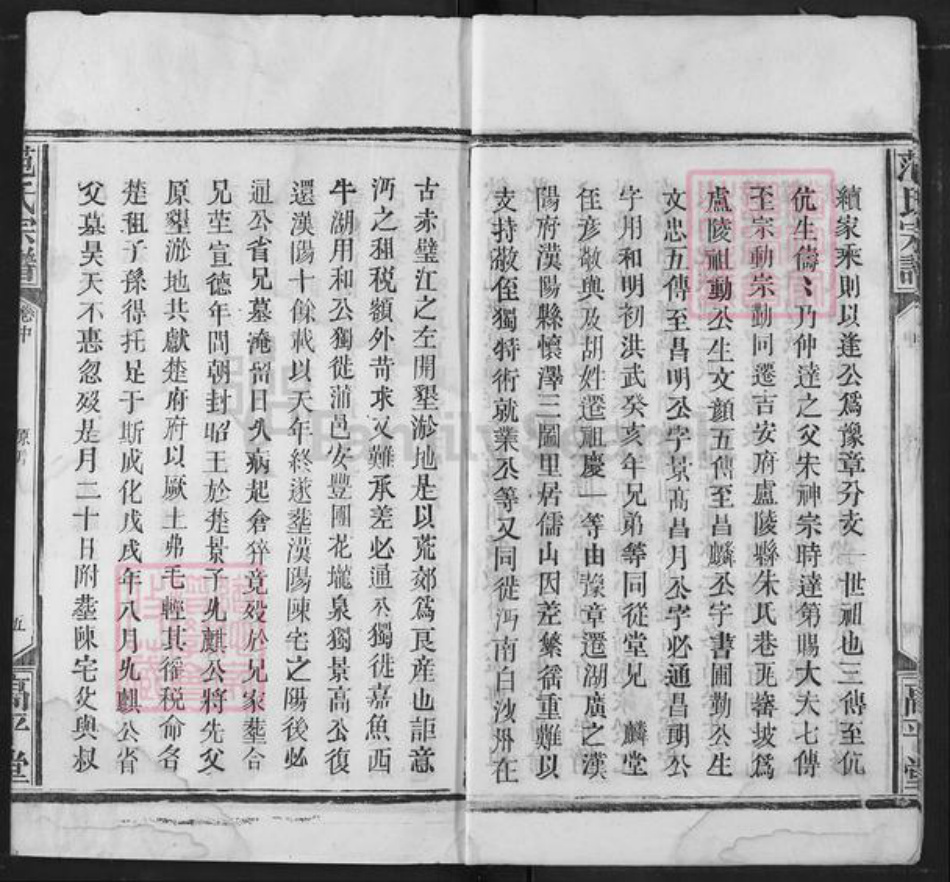 續家乘則以逢公爲豫章分支一世祖也三傳至伉
伉生儔儔乃仲達之父宋神宗時達第賜大夫七傳
至宗勳崇勳同遷吉安府盧陵縣朱氏巷瓦審坡爲
盧陵祖勳公生文顔五傳至昌麟公字書圃勤公生
文忠五傳至昌明公字景高昌月公字必通昌朗公
字用和明初洪武癸亥年兄弟等同從堂兄 麟堂
侄彥敬與及胡姓遷祖慶一等由豫章遷湖廣之漢
陽府漢陽縣懷澤三圖里居儒山因差繁徭重難以
支持敬侄獨特術就業公等又同徙沔南白沙州在
古赤璧江之左開墾淤地是以荒郊爲良產也詎意
沔之租税額外苛求又難承差必通公獨徙嘉魚西
牛湖用和公獨徙蒲邑安豐團花壠泉獨景高公復
還漢陽十餘載以天年終遂塟漢陽陳宅之陽後必
通公省兄墓淹留日久病起倉猝竟殁於兄家塟合
兄茔宣德年間朝封昭王於楚景子兆麒公將先父
原墾淤地共獻楚府府以厥土弗毛輕其徭税命各
楚租子孫得托足于斯成化戊戌年八月兆麒公省
父墓昊天不恵忽殁是月二十日附塟陳宅父與叔
范氏宗譜
卷中
五
高平堂